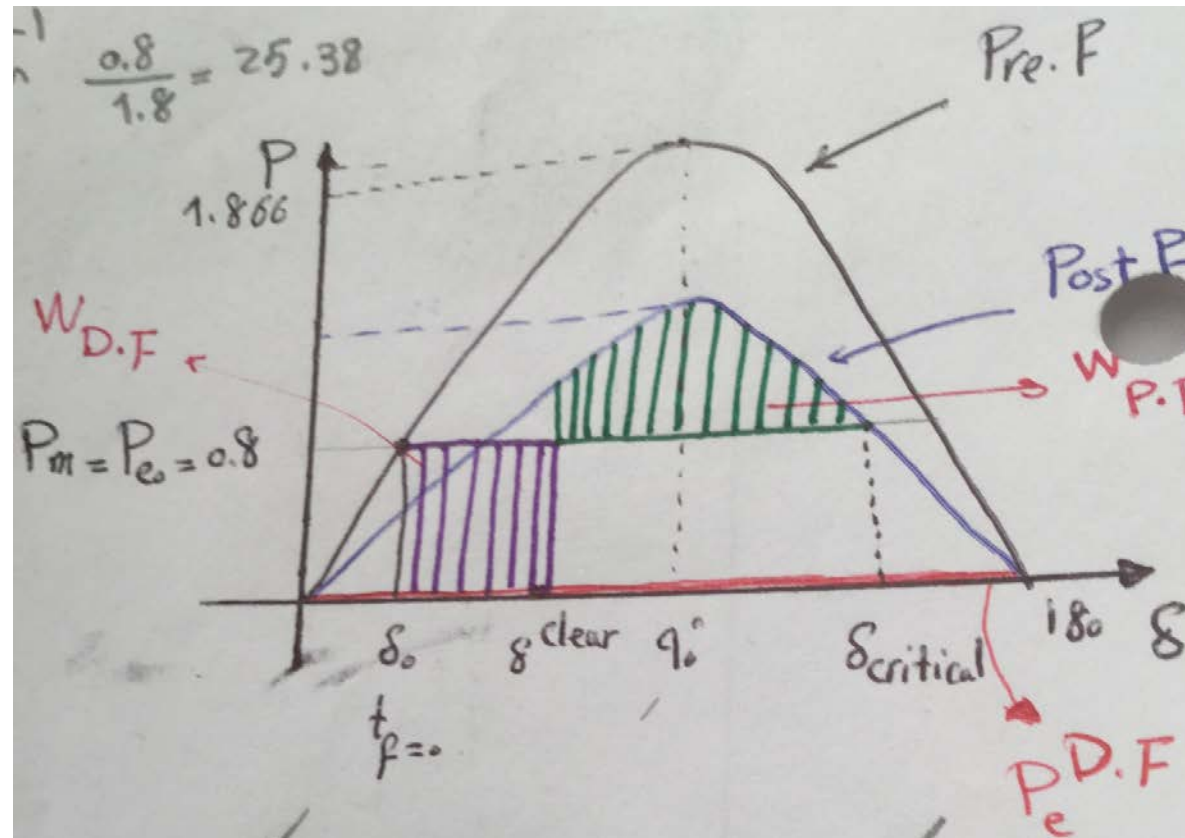 0.8
1.8
= 25.38
Pre. F
P
1.866
Post
W D.F
W P.
Pm = Pe₀ = 0.8
δ₀
δ clear
90°
δ critical
180
δ
t f=0
Pe D.F